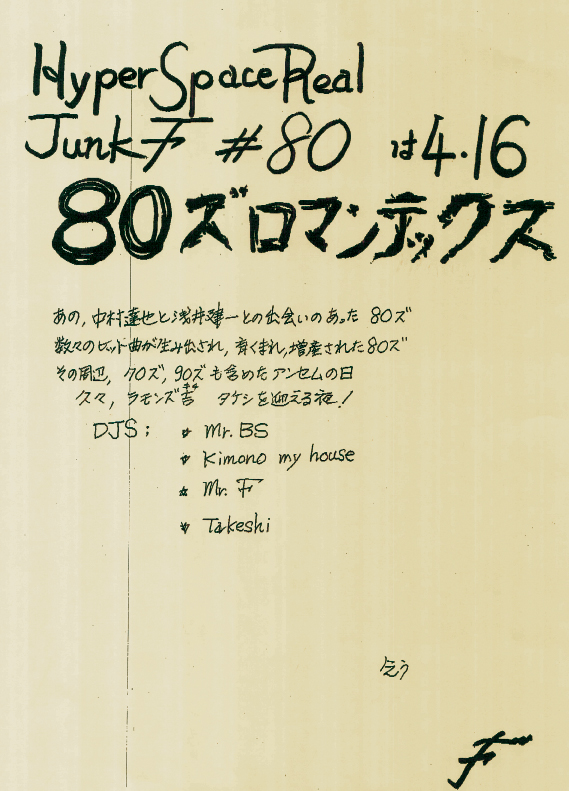 Hyper Space Real
Junk F #80 は4.16
80ズロマンテックス
あの,中村達也と浅井健一との出会いのあった 80ズ
数々のヒット曲が生み出され,育くまれ,増産された80ズ
その周辺,70ズ,90ズも含めたアンセムの日
久々,ラモンズ吉 タケシを迎える夜!
DJS;
* Mr. BS
* Kimono my house
* Mr. F
* Takeshi
F